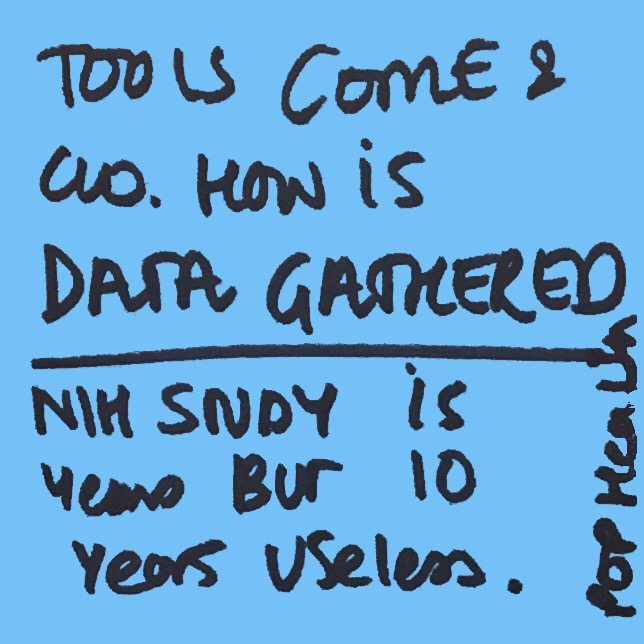 TOOLS COME &
GO. HOW is
DATA GATHERED
NIH STUDY is
years BUT 10
years Useless.
POP Health